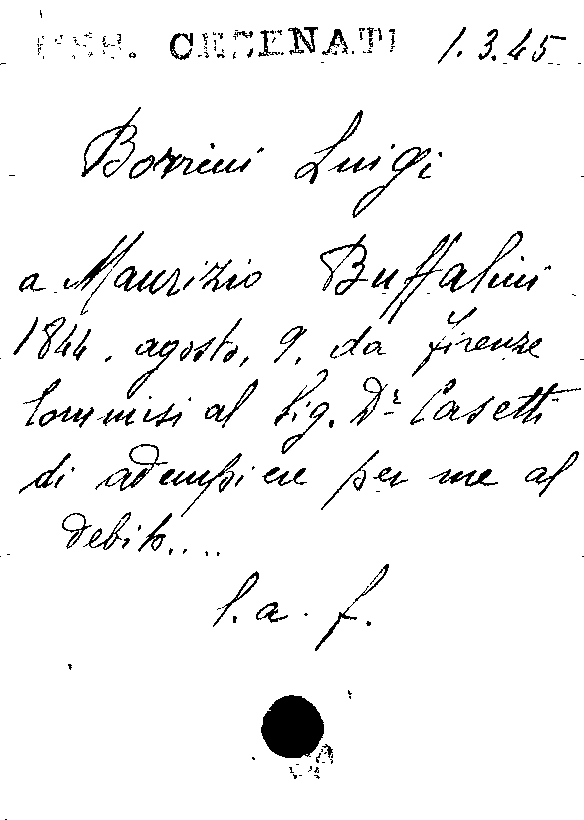 MSS. CESENATI 1.3.45
Borrini Luigi
a Maurizio Buffalini
1844. agosto, 9. da Firenze
Commisi al Sig. Dr Casetti
di adempiere per me al
debito....
l. a. f.